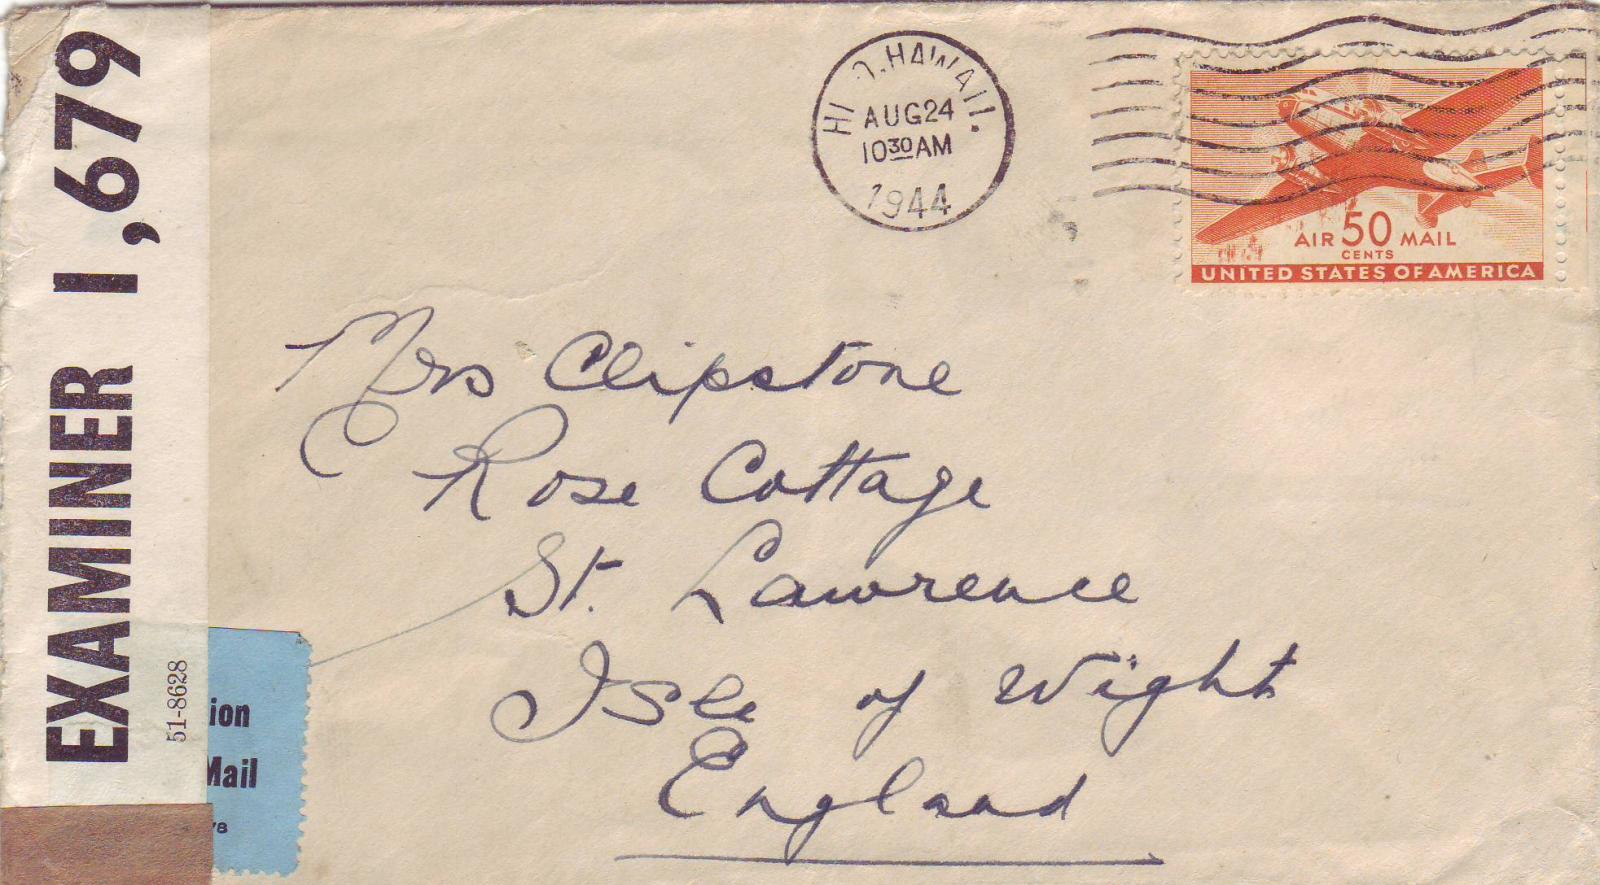 EXAMINER 1,679
51-8628
ion
Mail
78
HI O. HAWAII.
AUG 24
10 30 AM
1944
AIR 50 MAIL
CENTS
UNITED STATES OF AMERICA
Mrs Clipstone
Rose Cottage
St. Lawrence
Isle of Wight
England